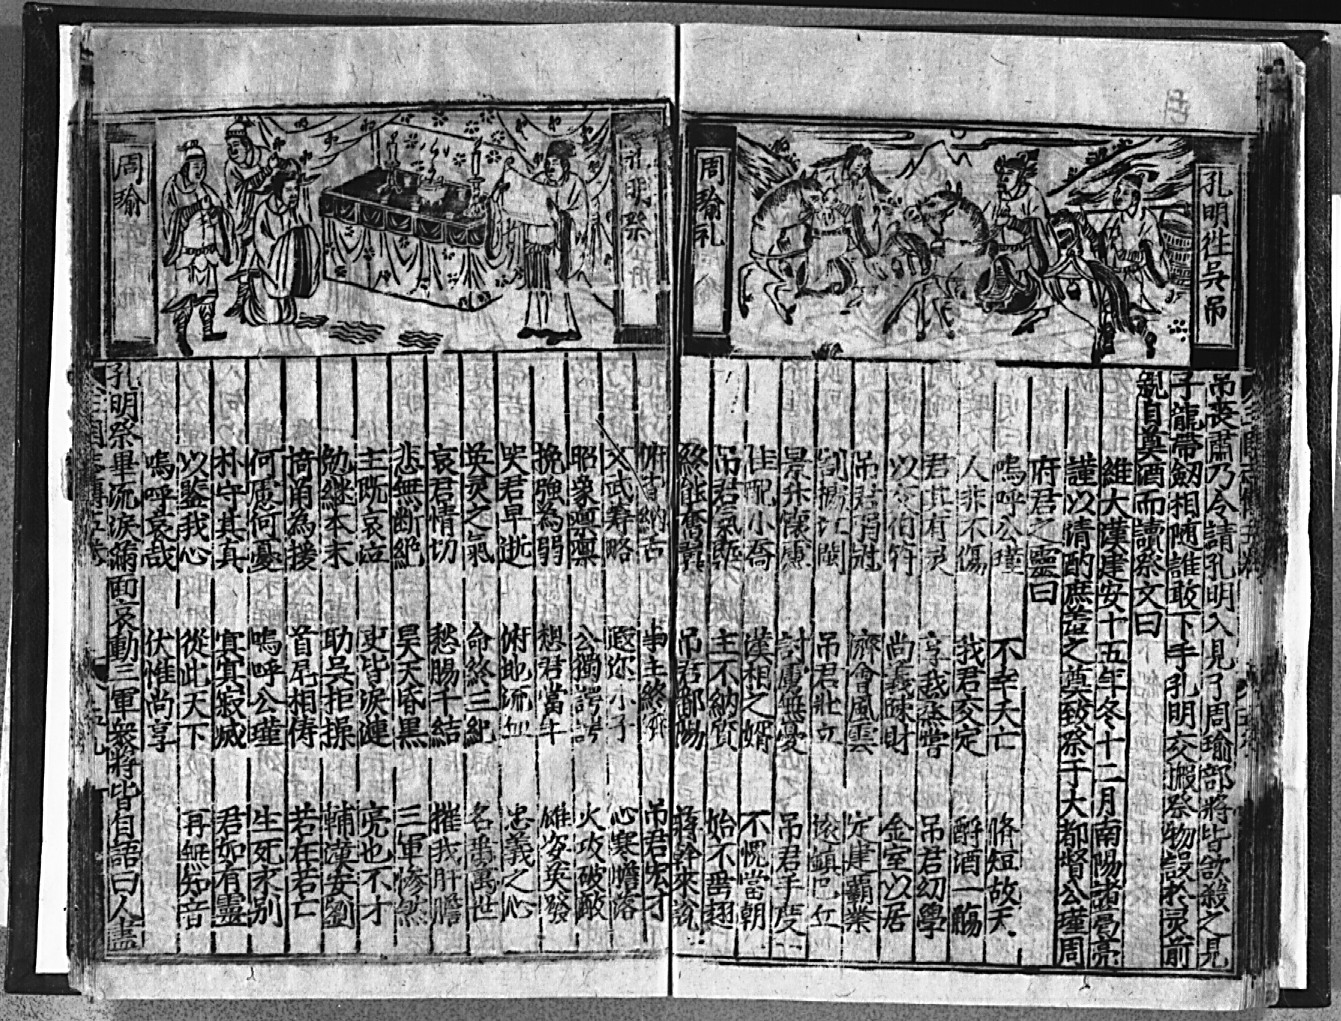 孔明往吳吊
周瑜礼
吊喪肅乃令請孔明入見了周瑜部將皆欲殺之見
子龍帶劔相随誰敢下手孔明交搬祭物設扵灵前
親自奠酒而讀祭文曰
維大漢建安十五年冬十二月南陽諸葛亮
謹以情酌庶羞之奠致祭于大都督公瑾周
府君之靈曰
嗚呼公瑾 不幸夭亡 脩短故天
人非不傷 我君交定 酹酒一觴
君其有灵 享我蒸嘗 吊君幼學
以交伯符 尚義疎財 金室以居
吊君弱冠 濟會風雲 定建覇業
割據江 吊君壯立 遠鎮巴丘
景升懷慮 討虜無憂 吊君手度
佳配小喬 漢相之婿 不愧當朝
吊君氣 主不納質 始不垂翅
終能奮翼 吊君鄱陽 蔣幹來說
孔明祭
周瑜
事主終濟 吊君宏才
文武籌略 小子 心寒膽落
昭象凛凛 公獨諤諤 火攻破敵
挽強為弱 想君當年 雄姿英發
哭君早逝 俯地流血 忠義之心
英灵之氣 命終三紀 名垂萬世
哀君情切 愁腸千結 摧我肝膽
悲無断絕 昊天昏黒 三軍惨然
主既哀泣 吏皆淚漣 亮也不才
勉継本末 助吳拒操 輔漢安劉
掎角為援 首尾相儔 若在若亡
何慮何憂 嗚呼公瑾 生死永別
朴守其真 寞寞寂滅 君如有靈
以鑒我心 從此天下 再無知音
嗚呼哀哉 伏惟尚享
孔明祭畢流淚滿面哀動三軍衆將皆自語曰人盡